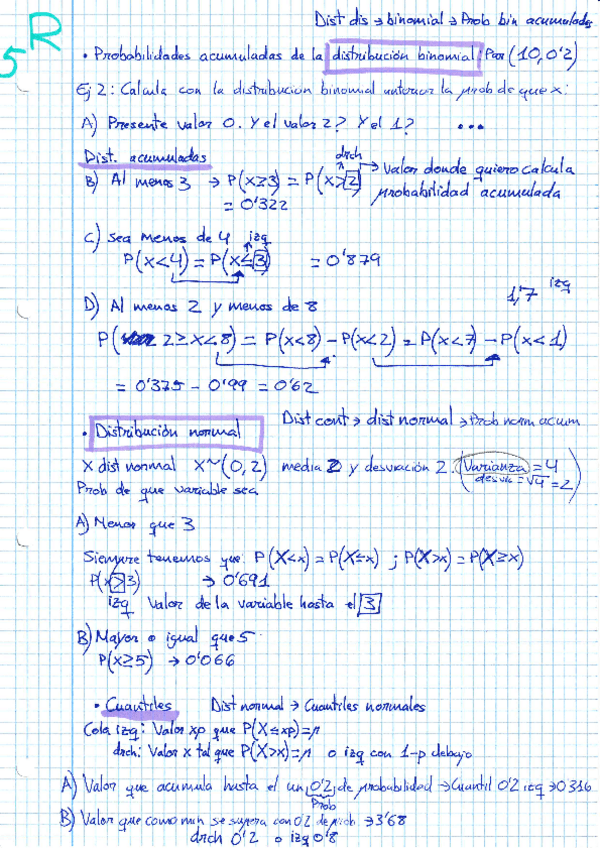 R
5
Dist dis → binomial → Prob bin acumuladas
• Probabilidades acumuladas de la distribución binomial: (10, 0'2)
Ej 2: Calcula con la distribucion binomial anterior la prob de que x:
A) Presente valor 0. Y el valor 2? Y el 1? ...
Dist. acumuladas
drch
B) Al menos 3 → P(x≥3) = P(x>2) → Valor donde quiero calcula
probabilidad acumulada
= 0'322
C) Sea menos de 4 izq
P(x<4) = P(x≤3) = 0'879
1,7 izq
D) Al menos 2 y menos de 8
P(2≥x<8) = P(x<8) - P(x<2) = P(x<7) - P(x<1)
= 0'375 - 0'99 = 0'62
Dist cont → dist normal → Prob norm acum
• Distribución normal
X dist normal X~(0,2) media 2 y desviación 2. (Varianza = 4
desvia = √4 = 2)
Prob de que variable sea
A) Menor que 3
Siempre tenemos que P(X<x) = P(X≤x) ; P(X>x) = P(X≥x)
P(x>3) → 0'691
izq Valor de la variable hasta el 3
B) Mayor o igual que 5
P(x≥5) → 0'066
• Cuantiles Dist normal → Cuantiles normales
Cola izq: Valor xp que P(X≤xp)=p
drch: Valor x tal que P(X>x)=p o izq con 1-p debajo
A) Valor que acumula hasta el un 0'2 de probabilidad → Cuantil 0'2 izq → 0316
Prob
B) Valor que como min se supera con 0'2 de prob → 3'68
drch 0'2 o izq 0'8